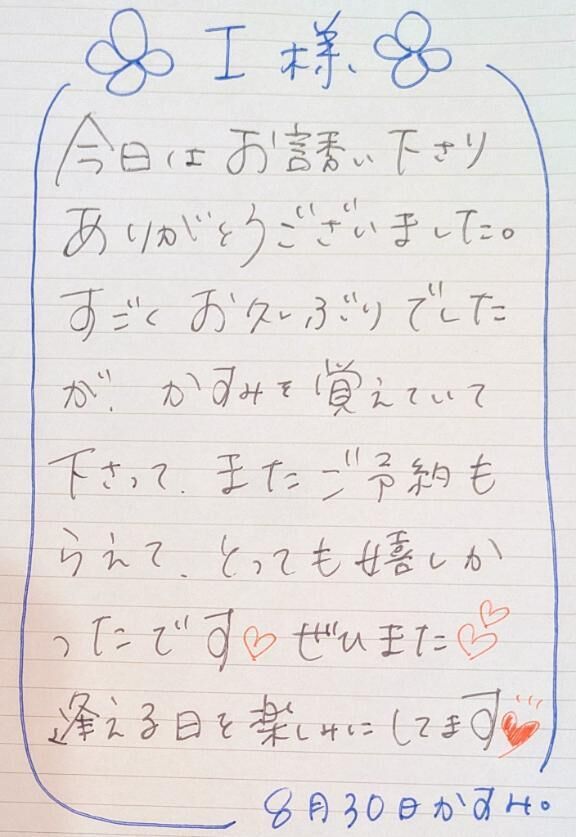 I様
今日はお誘い下さり
ありがとうございました。
すごくお久しぶりでした
が、かすみを覚えていて
下さって、またご予約も
らえて、とっても嬉しか
ったです♡ぜひまた♡♡
逢える日を楽しみにしてます♥
8月30日かすみ。